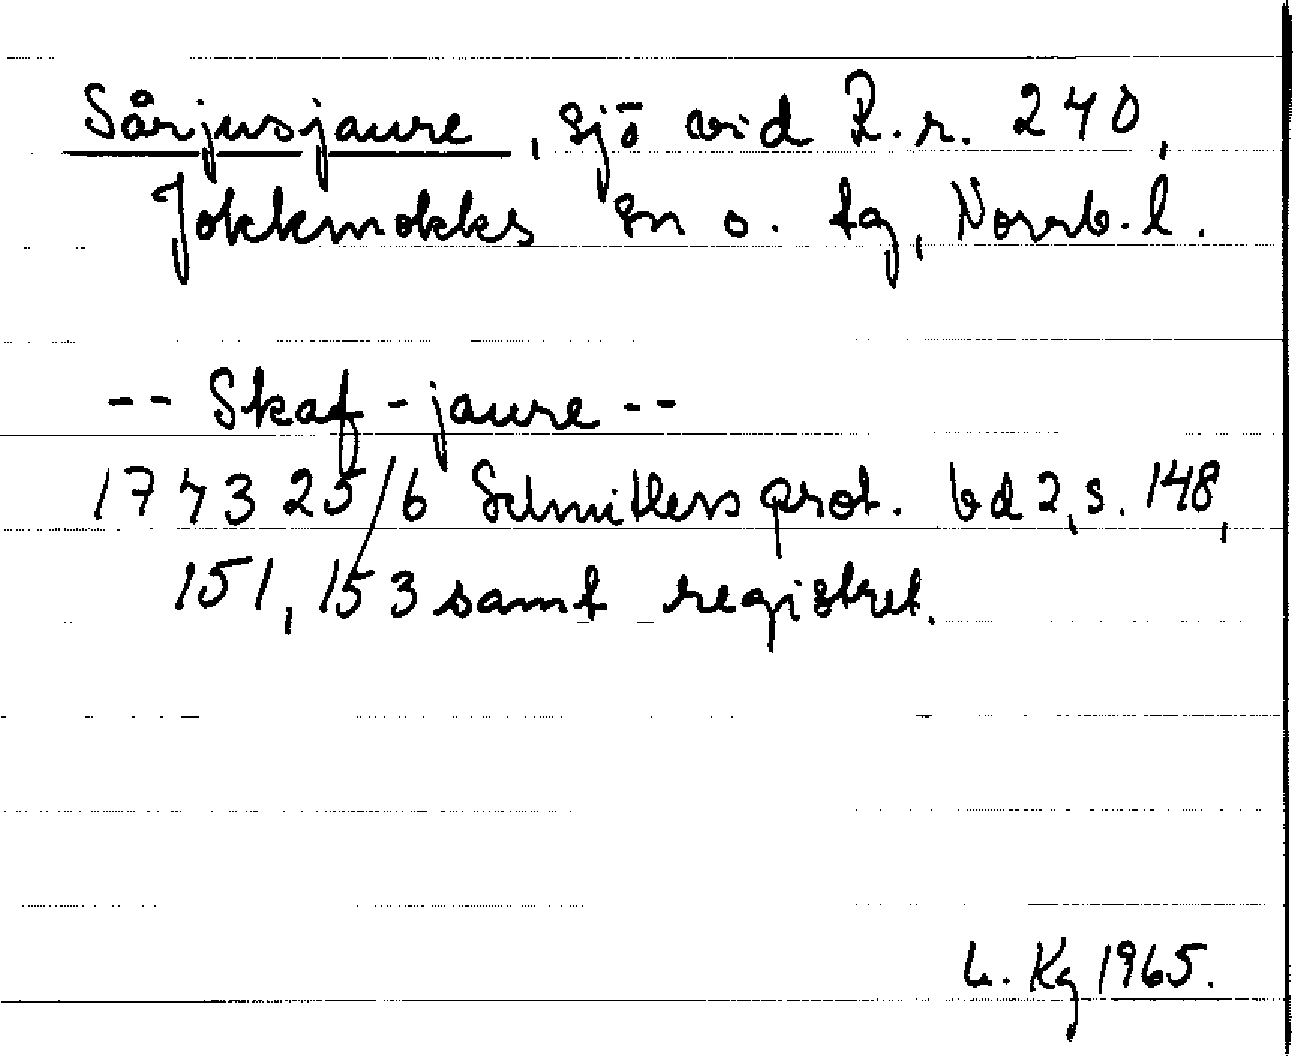 Sårjusjaure, sjö vid R.r. 240,
Jokkmokks sn o. tg, Norrb. l.
-- Skaf-jaure --
1743 25/6 Schnitlers prot. bd 2, s. 148,
151, 153 samt registret.
L. Kg 1965.